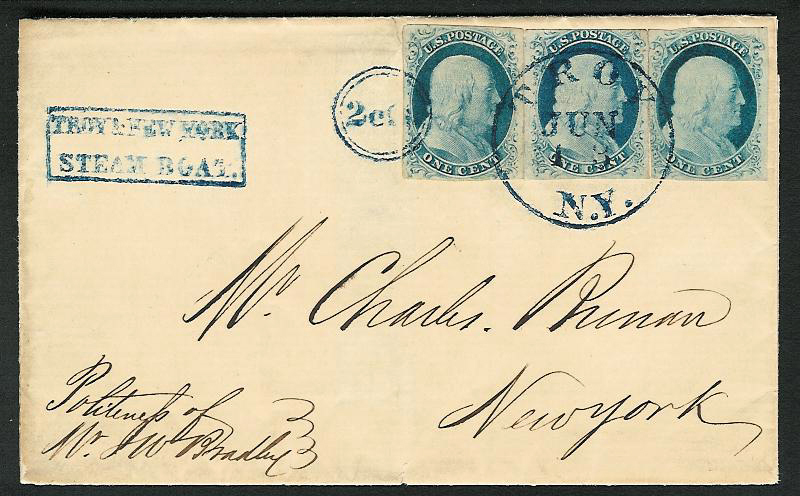 U.S. POSTAGE
ONE CENT
U.S. POSTAGE
ONE CENT
U.S. POSTAGE
ONE CENT
2cts
TROY
JUN
13
N.Y.
TROY & NEW YORK
STEAM BOAT.
Mr. Charles.
New york
Politeness of
Mr. J W Bradley